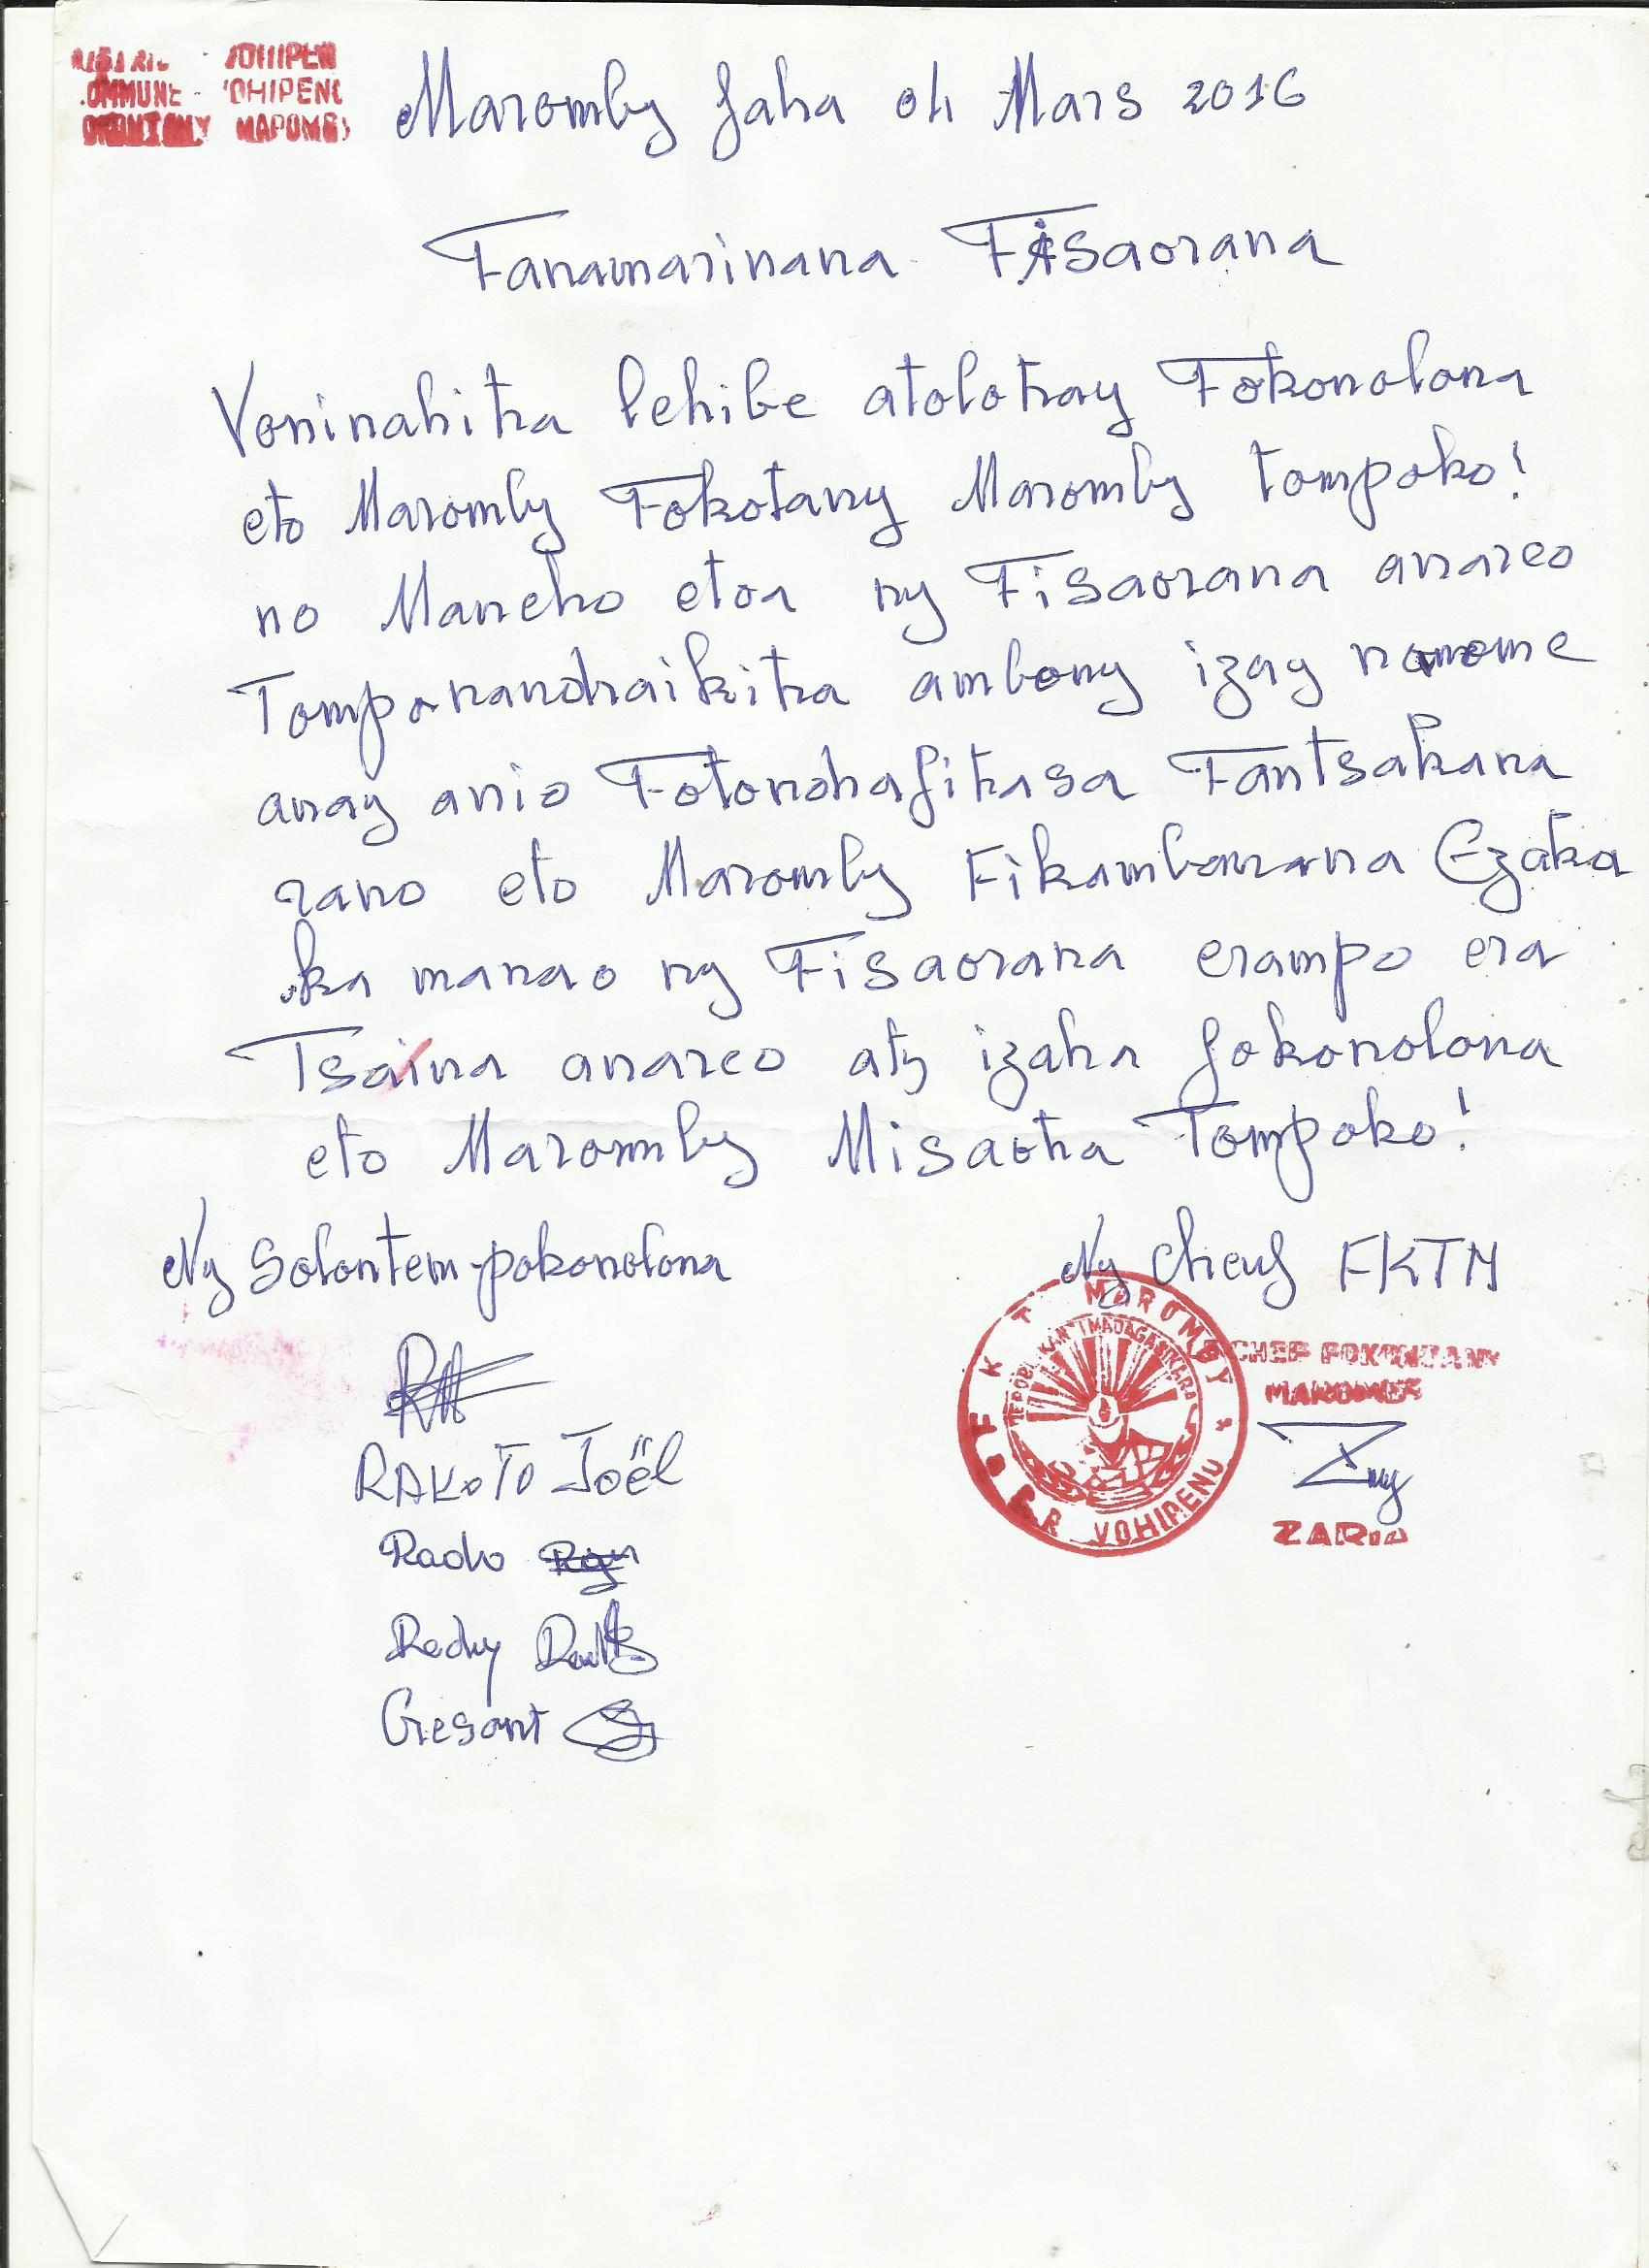 VOHIPEN
OMMUNE - VOHIPENO
MAROMBY
Maromby faha 04 Mars 2016
Fanamarinana Fisaorana
Voninahitra lehibe atolotray Fokonolona
eto Maromby Fokotany Maromby tompoko!
no Maneho etoa ny Fisaorana anareo
Tomponandraikitra ambony izay nanome
anay anio Fotondrafitrasa Fantsakana
rano eto Maromby Fikambanana Ezaka
ka manao ny Fisaorana erampo era
Tsaina anareo aty izaha fokonolona
eto Maromby Misaotra Tompoko!
Ny Solontem-pokonolona
Ny Cheuf FKTM
RAKOTO Joël
Rado
Redhy
Gesant
FKT MAROMBY
REPOBLIKAN'I MADAGASIKARA
VOHIPENO
CHEF FOKONTANY
MAROMBY
ZARIA